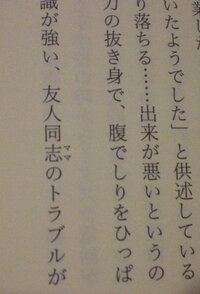 業した
いたようでした」と供述している
り落ちる……出来が悪いというの
刀の抜き身で、腹でしりをひっぱ
識が強い、友人同志のトラブルが
ママ